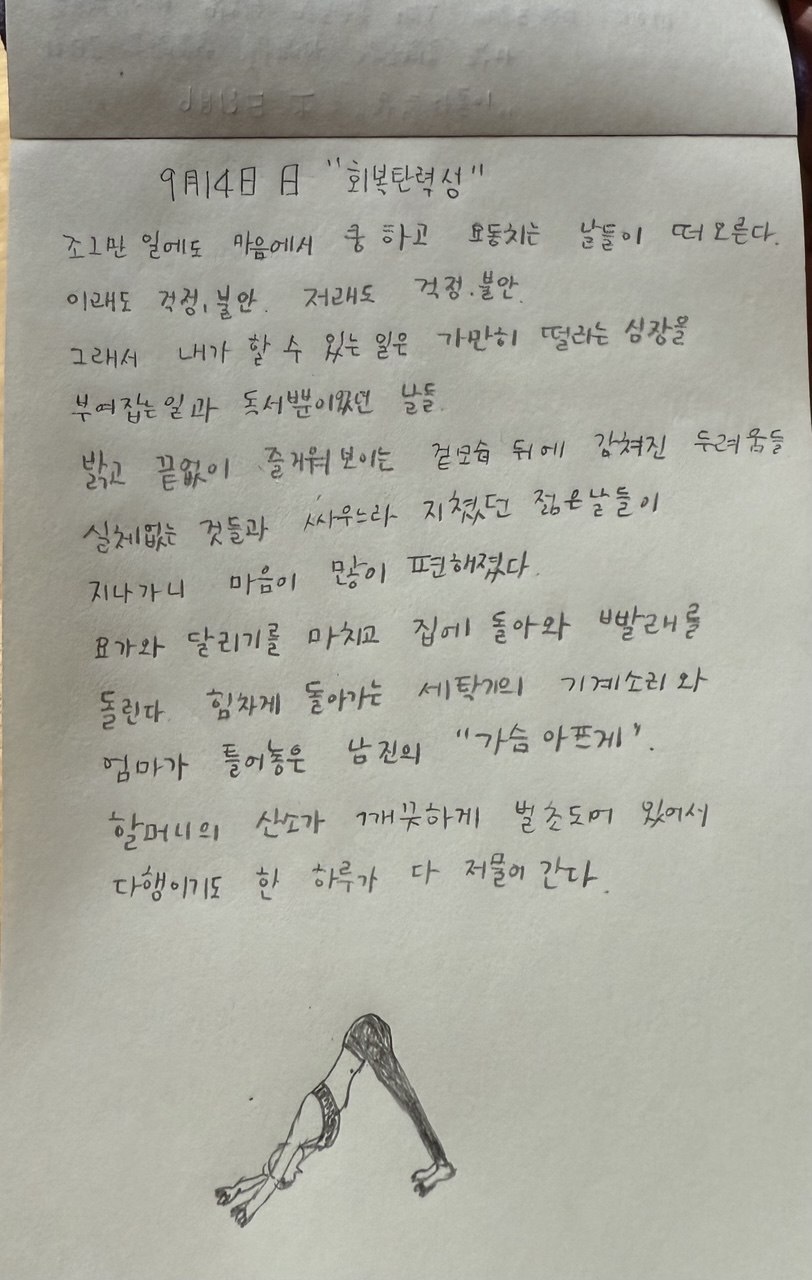 9月14日 日 "회복탄력성"
조그만 일에도 마음에서 쿵 하고 요동치는 날들이 떠오른다.
이래도 걱정, 불안. 저래도 걱정. 불안.
그래서 내가 할 수 있는 일은 가만히 떨리는 심장을
부여잡는 일과 독서뿐이었던 날들.
밝고 끝없이 즐거워 보이는 겉모습 뒤에 감쳐진 두려움들
실체없는 것들과 싸우느라 지쳤던 젊은날들이
지나가니 마음이 많이 편해졌다.
요가와 달리기를 마치고 집에 돌아와 빨래를
돌린다. 힘차게 돌아가는 세탁기의 기계소리와
엄마가 틀어놓은 남진의 "가슴 아프게".
할머니의 산소가 깨끗하게 벌초되어 있어서
다행이기도 한 하루가 다 저물어 간다.